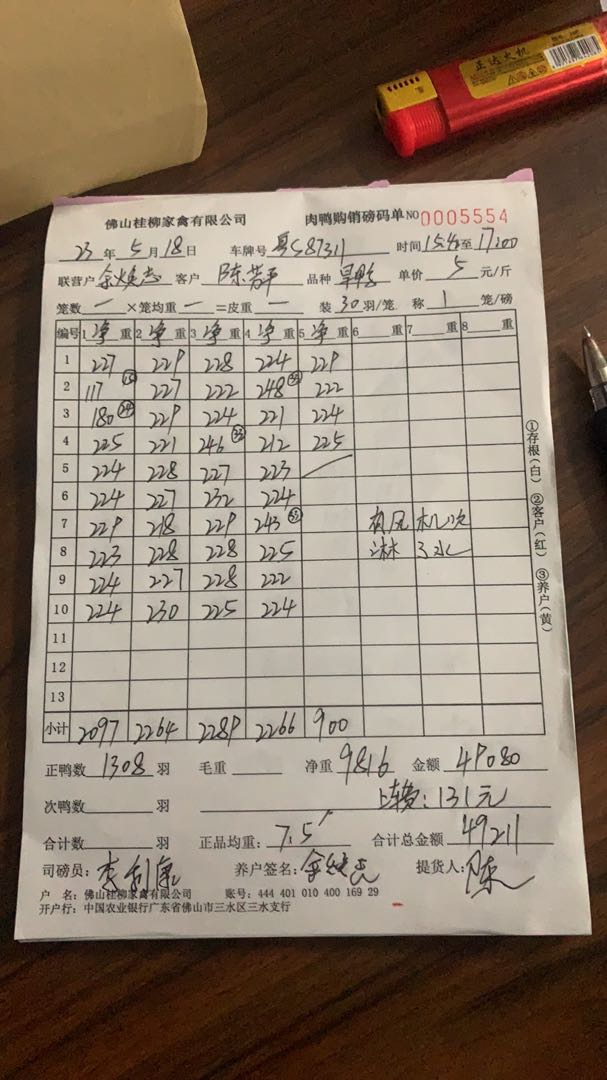 正达火机
佛山桂柳家禽有限公司 肉鸭购销磅码单 NO 0005554
23 年 5 月 18 日 车牌号 粤S87311 时间 至 17:00
联营户 余焕志 客户 陈芳平 品种 旱鸭 单价 5 元/斤
笼数 一 ×笼均重 一 =皮重 一 装 30 羽/笼 称 1 笼/磅
编号 1 净 重 2 净 重 3 净 重 4 净 重 5 净 重 6 重 7 重 8 重
1 227 229 228 224 229
2 117 227 222 248 222
3 180 229 224 221 224
4 225 221 246 212 225
5 224 228 227 223
6 224 227 232 224
7 229 218 229 243 有风机吹
8 223 228 228 225 淋了水
9 224 227 228 222
10 224 230 225 224
11
12
13
小计 2097 2264 2289 2266 900
①存根(白) ②客户(红) ③养户(黄)
正鸭数 1308 羽 毛重 净重 9816 金额 49080
次鸭数 羽 上车费:131元
合计数 羽 正品均重: 7.5 合计总金额 49211
司磅员: 养户签名: 余焕志 提货人: 陈
户 名: 佛山桂柳家禽有限公司 账号: 444 401 010 400 169 29
开户行: 中国农业银行广东省佛山市三水区三水支行